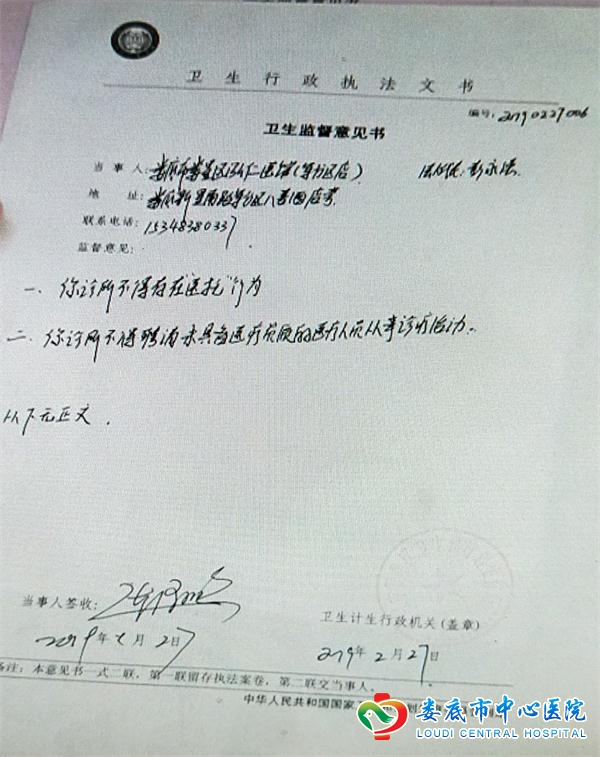 卫生行政执法文书
编号: 20190227006
卫生监督意见书
当事人:
地址:
联系电话: 15348380337
监督意见:
一、你诊所不得存在"医托"行为
二、你诊所不得聘请未具备医疗资质的医疗人员从事诊疗活动。
以下无正文.
当事人签收:
2019年2月27日
卫生计生行政机关(盖章)
2019年2月27日
备注:本意见书一式二联,第一联留存执法案卷,第二联交当事人。
中华人民共和国国家
娄底市中心医院
LOUDI CENTRAL HOSPITAL